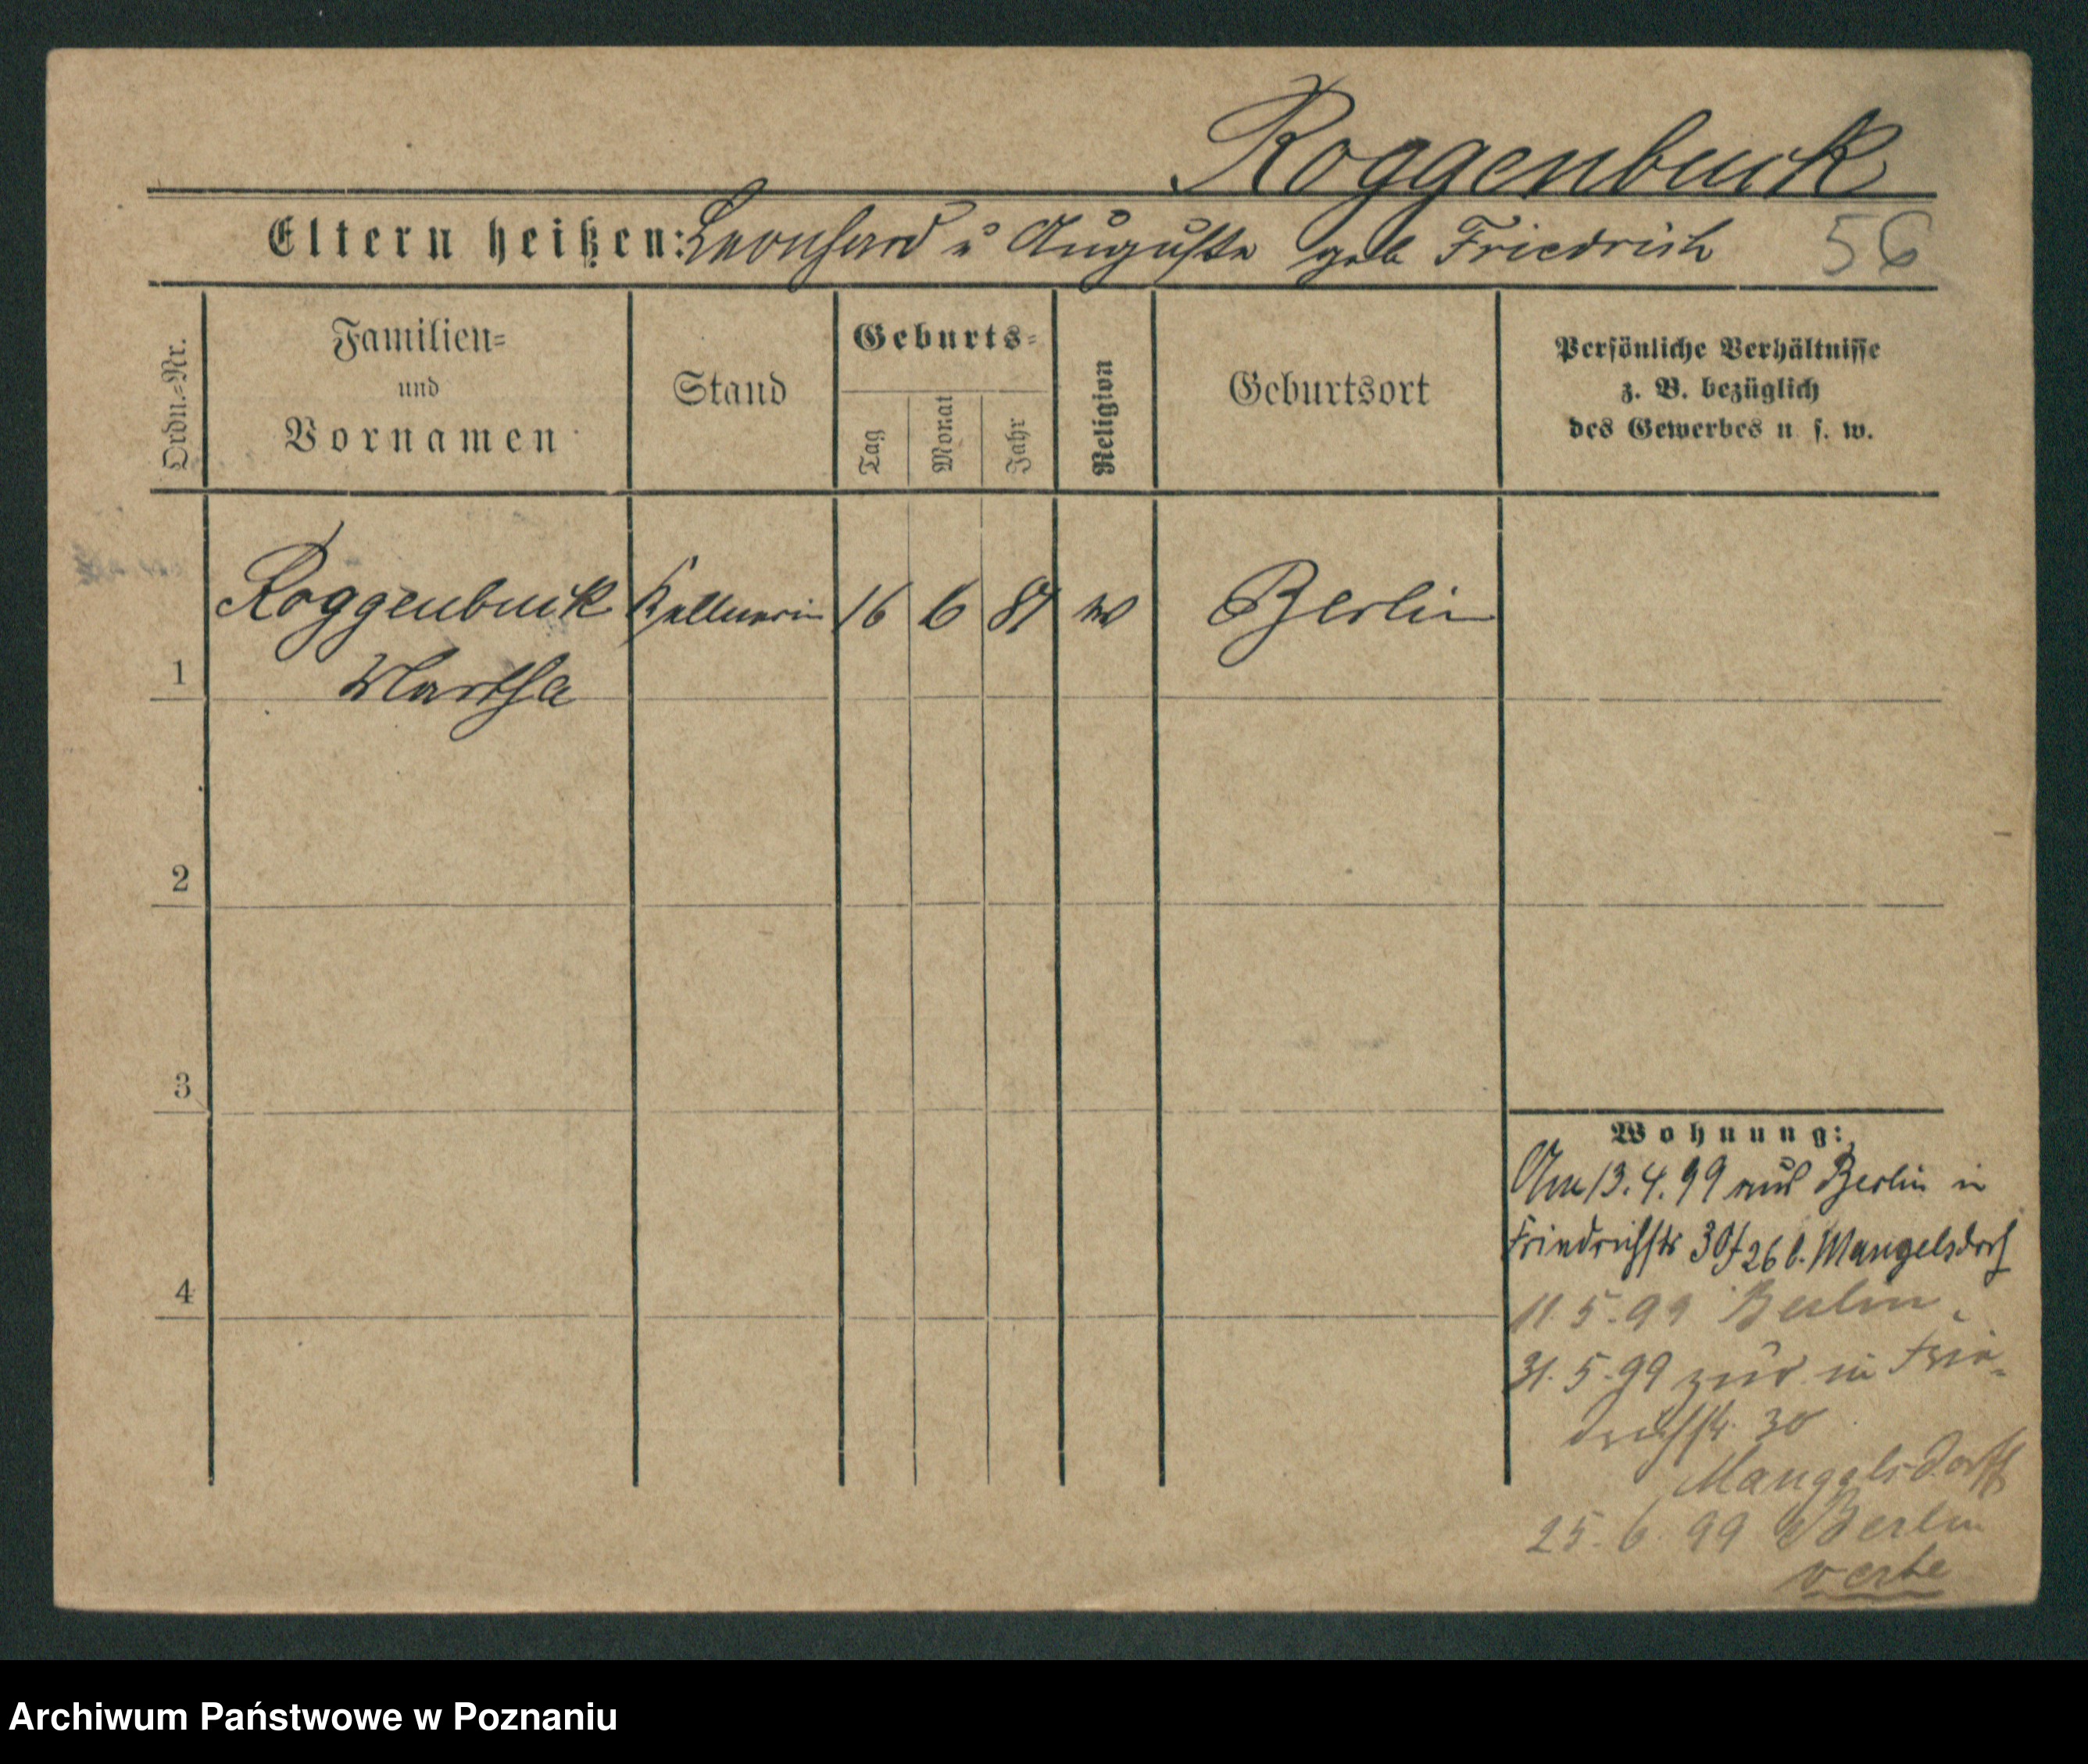 Roggenbuck
Eltern heißen: Leonhard u Auguste geb Friedrich 56
Ordn.=Nr.
Familien=
und
Vornamen
Stand
Geburts=
Tag
Monat
Jahr
Religion
Geburtsort
Persönliche Verhältnisse
z. B. bezüglich
des Gewerbes u s. w.
1 Roggenbuck Kellnerin 16 6 81 Berlin
Martha
2
3
4
Wohnung:
Am 13.4.99 aus Berlin in
Friedrichstr 30 26 b. Mangelsdorf
11.5.99 Berlin
31.5.99 zur in Frie=
drichstr. 30
Mangelsdorff
25.6.99 Berlin
verte
Archiwum Państwowe w Poznaniu